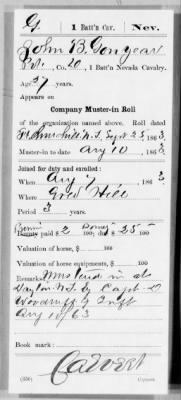 G | 1 Batt'n Cav. | Nev.
John B. Gonyear
Pvt., Co. 20, 1 Batt'n Nevada Cavalry.
Age 37 years.
Appears on
Company Muster-in Roll
of the organization named above. Roll dated
Ft. Churchill N.T. Sept 25, 1863.
Muster-in to date Aug 10, 1863.
Joined for duty and enrolled:
When Aug 7, 1863.
Where Gold Hill
Period 3 years.
Bounty paid $2 /100; due $25 /100
Valuation of horse, $ /100
Valuation of horse equipments, $ /100
Remarks: Mustered in at
Taylor N.T. by Capt. D
Woodruff 9 Inft
Aug 10 /63
Book mark:
Calvert
(356) Copyist.